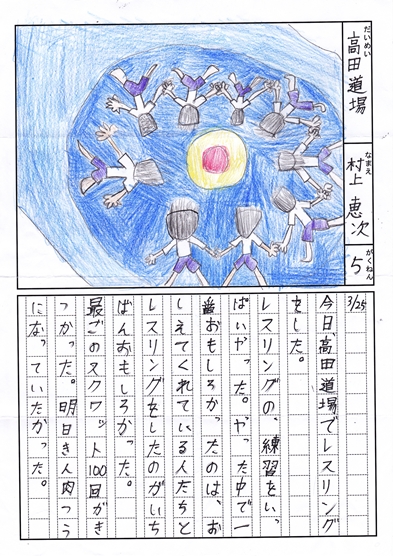 だいめい
高田道場
なまえ
村上 恵次
がくねん
5
3/25
今日、高田道場でレスリング
をした。
レスリングの、練習をいっ
ぱいやった。やった中で一
番おもしろかったのは、お
しえてくれている人たちと
レスリングをしたのがいち
ばんおもしろかった。
最ごのスクワット100回がき
つかった。明日きん肉つう
になっていたかった。